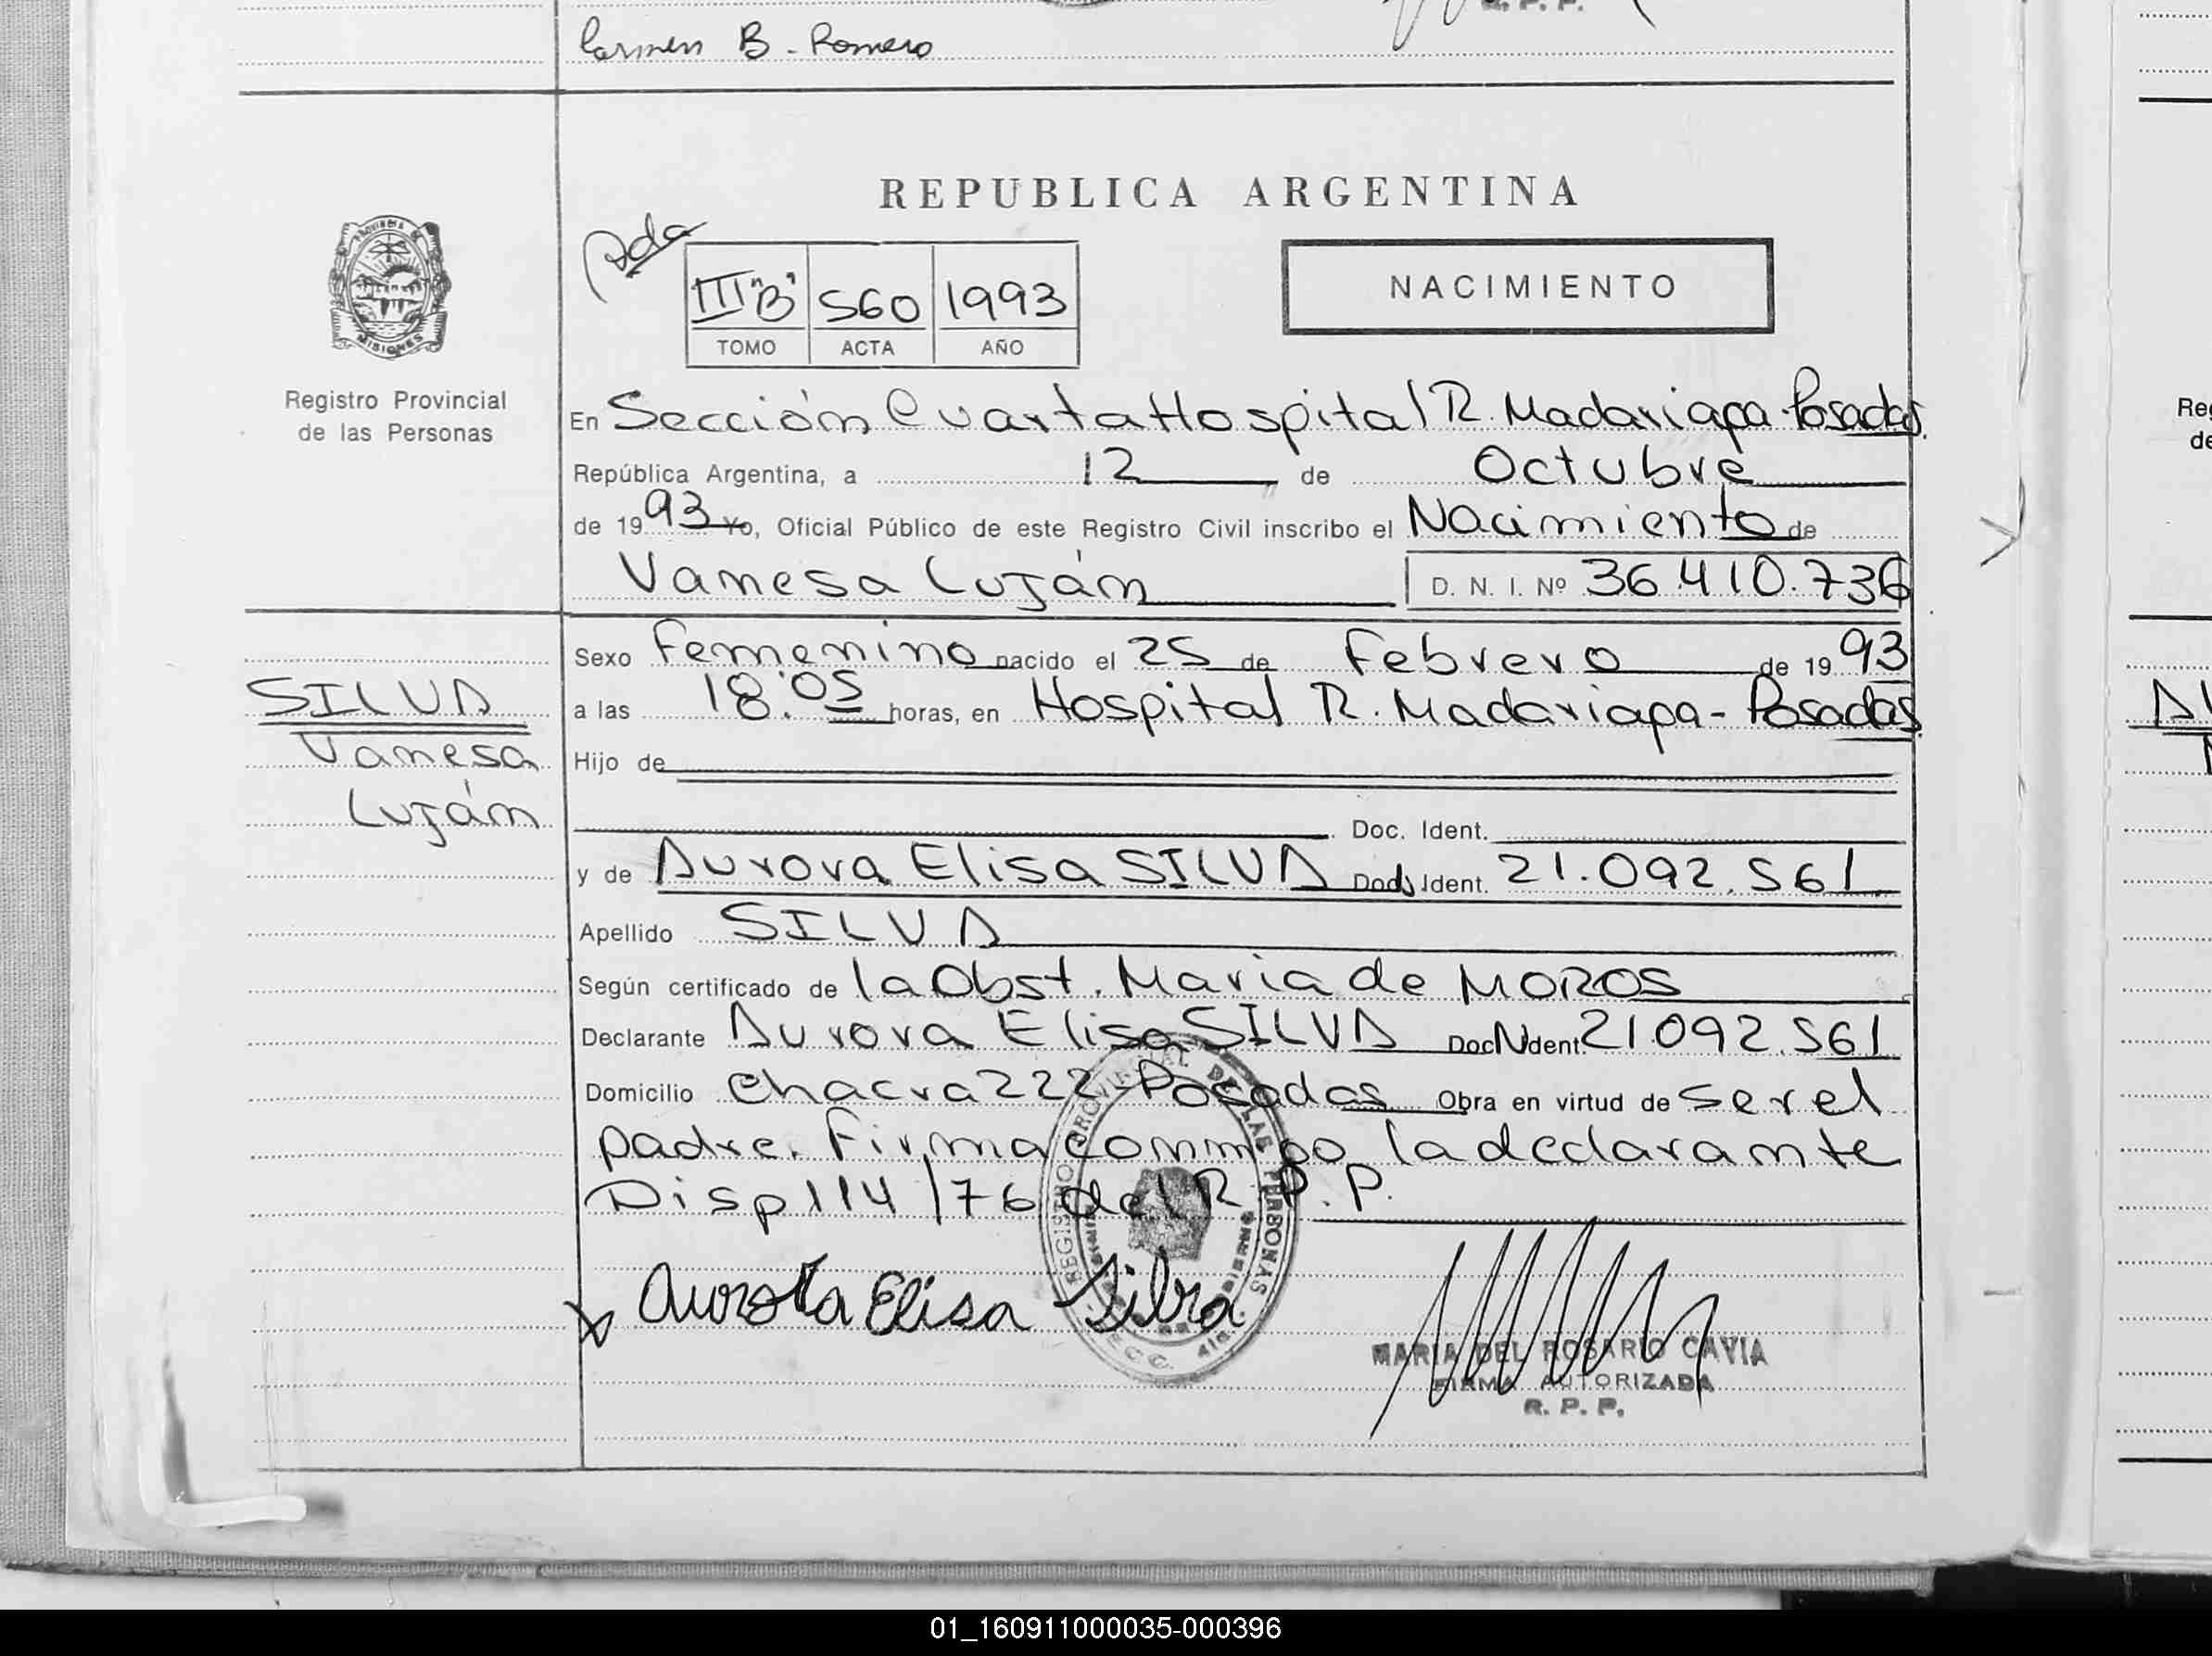 Carmen B. Romero
REPUBLICA ARGENTINA
PROVINCIA DE
MISIONES
III "B" 560 1993
TOMO ACTA AÑO
NACIMIENTO
Registro Provincial
de las Personas
En Sección Cuarta Hospital R. Madariaga-Posadas
República Argentina, a 12 de Octubre
de 1993 Yo, Oficial Público de este Registro Civil inscribo el Nacimiento de
Vanesa Luján D. N. I. Nº 36.410.736
Sexo Femenino nacido el 25 de Febrero de 1993
SILVA
a las 18:05 horas, en Hospital R. Madariaga-Posadas
Vanesa
Hijo de
Luján
Doc. Ident.
y de Aurora Elisa SILVA Doc. Ident. 21.092.561
Apellido SILVA
Según certificado de la Obst. Maria de MOROS
Declarante Aurora Elisa SILVA Doc. Ident. 21.092.561
Domicilio Chacra 222-Posadas Obra en virtud de ser el
padre. Firma conmigo la declarante
Disp 114/76 del R.P.P.
REGISTRO PROVINCIAL DE LAS PERSONAS
Aurora Elisa Silva
MARIA DEL ROSARIO CAVIA
FIRMA AUTORIZADA
R. P. P.
01_160911000035-000396